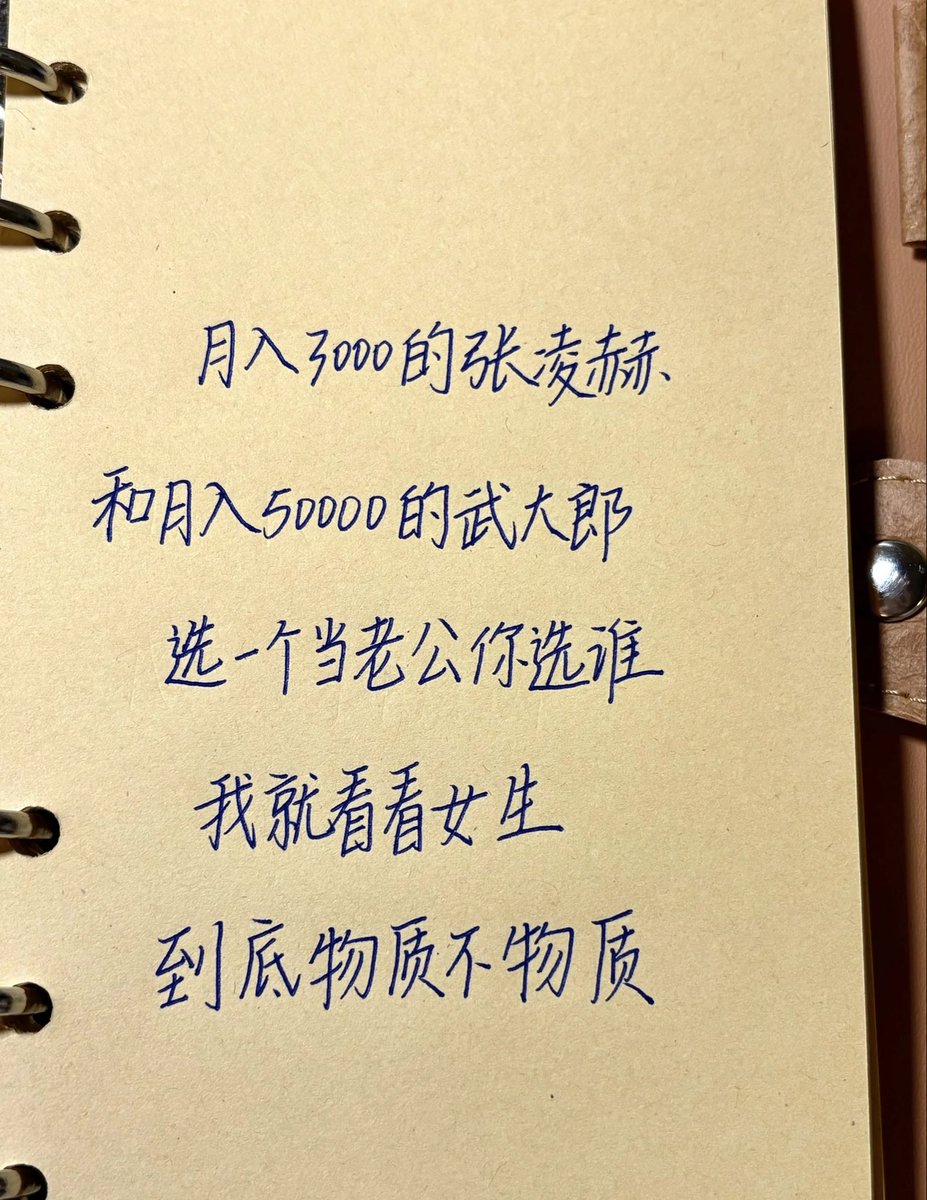 月入3000的张凌赫、
和月入50000的武大郎
选一个当老公你选谁
我就看看女生
到底物质不物质